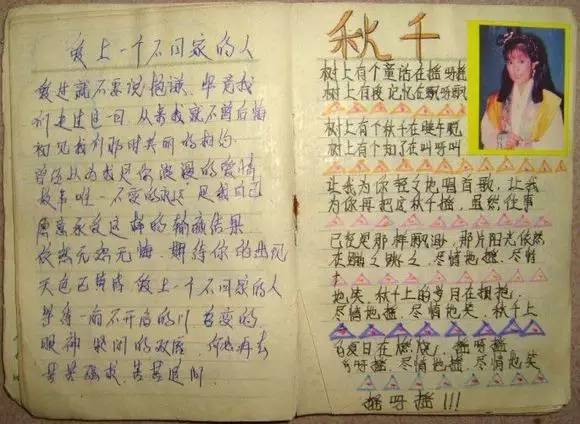 爱上一个不回家的人
爱过就不要说抱谦，毕竟我
们走过这一回，从来我就不曾后悔
初见我们那时共同的相约
曾经以为我是你浪漫的爱情
故事唯一不变的永远，是我自己
愿意承受这样的输赢结果
依然无怨无悔，期待你的出现
天色已黄昏 爱上一个不回家的人
等待一扇不开启的门 善变的
眼神 紧闭的双唇，何必再去
苦苦强求，苦苦追问
秋千
树上有个童话在摇呀摇
树上有段记忆在飘呀飘
树上有个秋千在
树上有个知了在叫呀叫
让我为你轻轻地唱首歌，让我
为你再把这秋千摇，虽然往事
已经是那样飘渺，那片阳光依然
在 尽情地摇，尽情
地笑，秋千上的岁月在拥抱
尽情地摇，尽情地笑，秋千上
的夏日在燃烧，摇呀摇
尽情地摇，尽情地笑
摇呀摇！！！